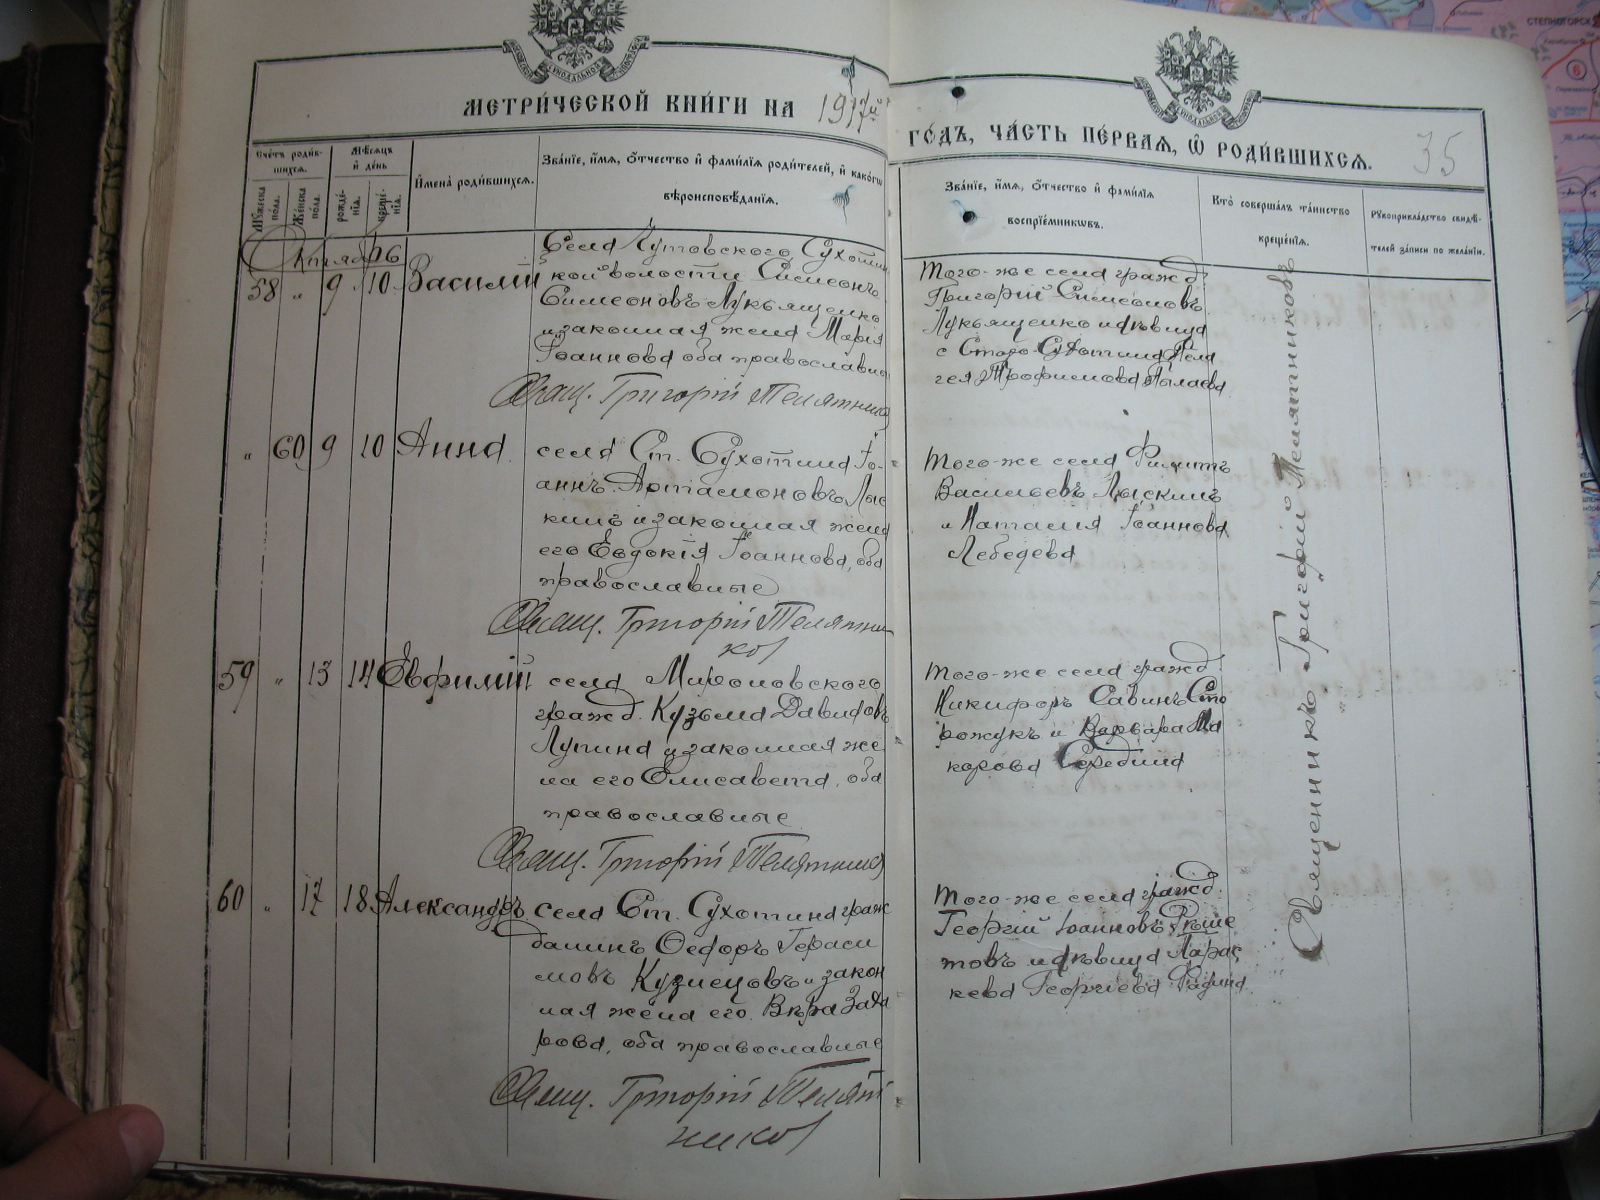 МЕТРИ́ЧЕСКОЙ КНИ́ГИ НА 1917й
ГО́ДЪ, ЧА́СТЬ ПЕ́РВАѦ, Ѽ РОДИ́ВШИХСѦ.
35
Сче́тъ роди́в-
шихсѧ.
Мѣ́сѧцъ
и де́нь
Мꙋ́жеска по́ла.
Же́нска по́ла.
рожде́-
нїѧ.
креще́-
нїѧ.
И҆мена̀ роди́вшихсѧ.
Зва́нїе, и҆́мѧ, ѻ҆́тчество и҆ фами́лїѧ роди́телей, и҆ како́гѡ
вѣроисповѣ́данїѧ.
Зва́нїе, и҆́мѧ, ѻ҆́тчество и҆ фами́лїѧ
воспрїе́мникѡвъ.
Кто̀ соверша́лъ та́инство
креще́нїѧ.
Рꙋкоприкла́дство свидѣ́-
телей за́писи по жела́нїю.
Октябрь
58 " 9 10 Василій
Села Кутовского Сухотин
кой волости Симеонъ
Симеоновъ Лукьященко
и законная жена Марія
Іоаннова оба православн
Свящ. Григорій Телятник
Того-же села гражд.
Григорій Симеоновъ
Лукьященко и дѣвица
с Старо-Сухотина Пела
гея Трофимова
" 60 9 10 Анна
села Ст. Сухотина Іо-
аннъ Артамоновъ Лыс
кинъ и законная жена
его Евдокія Іоаннова, оба
православные
Свящ. Григорій Телятни
ков
Того-же села Филиппъ
Васильевъ Лыскинъ
и Наталия Іоаннова
Лебедева
59 " 13 14 Евфимій
села Мироновского
гражд. Кузьма Давидовъ
Лупина и законная же
на его Елисавета, оба
православные
Свящ. Григорій Телятник
Того-же села гражд.
Никифоръ Савинъ Сто
рожукъ и Варвара Ма
карова Середина
60 " 17 18 Александръ
Села Ст. Сухотина граж
данинъ Ѳедоръ Гераси
мовъ Кузнецовъ и закон
ная жена его Вѣра Заха
рова, оба православные
Свящ. Григорій Телят
ников
Того-же села гражд.
Георгій Іоанновъ Рѣше
товъ и дѣвица Парас
кева Георгіева
Священникъ Григорій Телятниковъ
СТЕПНОГОРСК